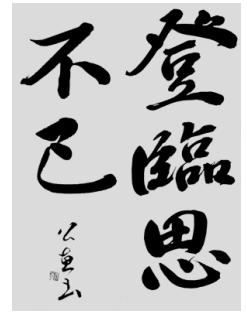 登臨思
不已